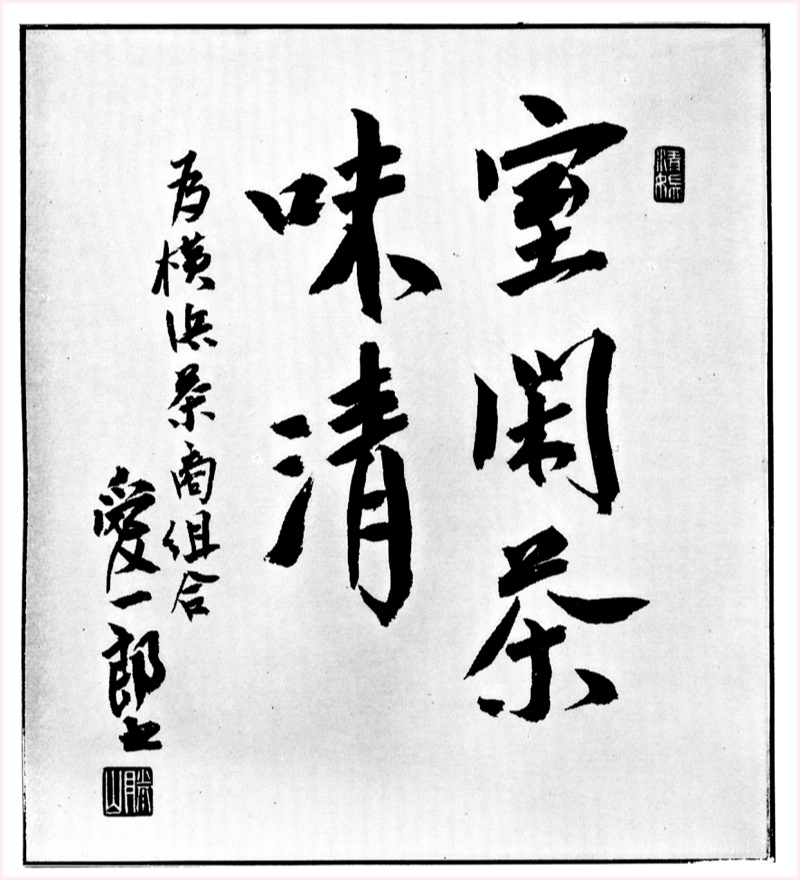 室閑茶
味清
為横浜茶商組合
愛一郎書